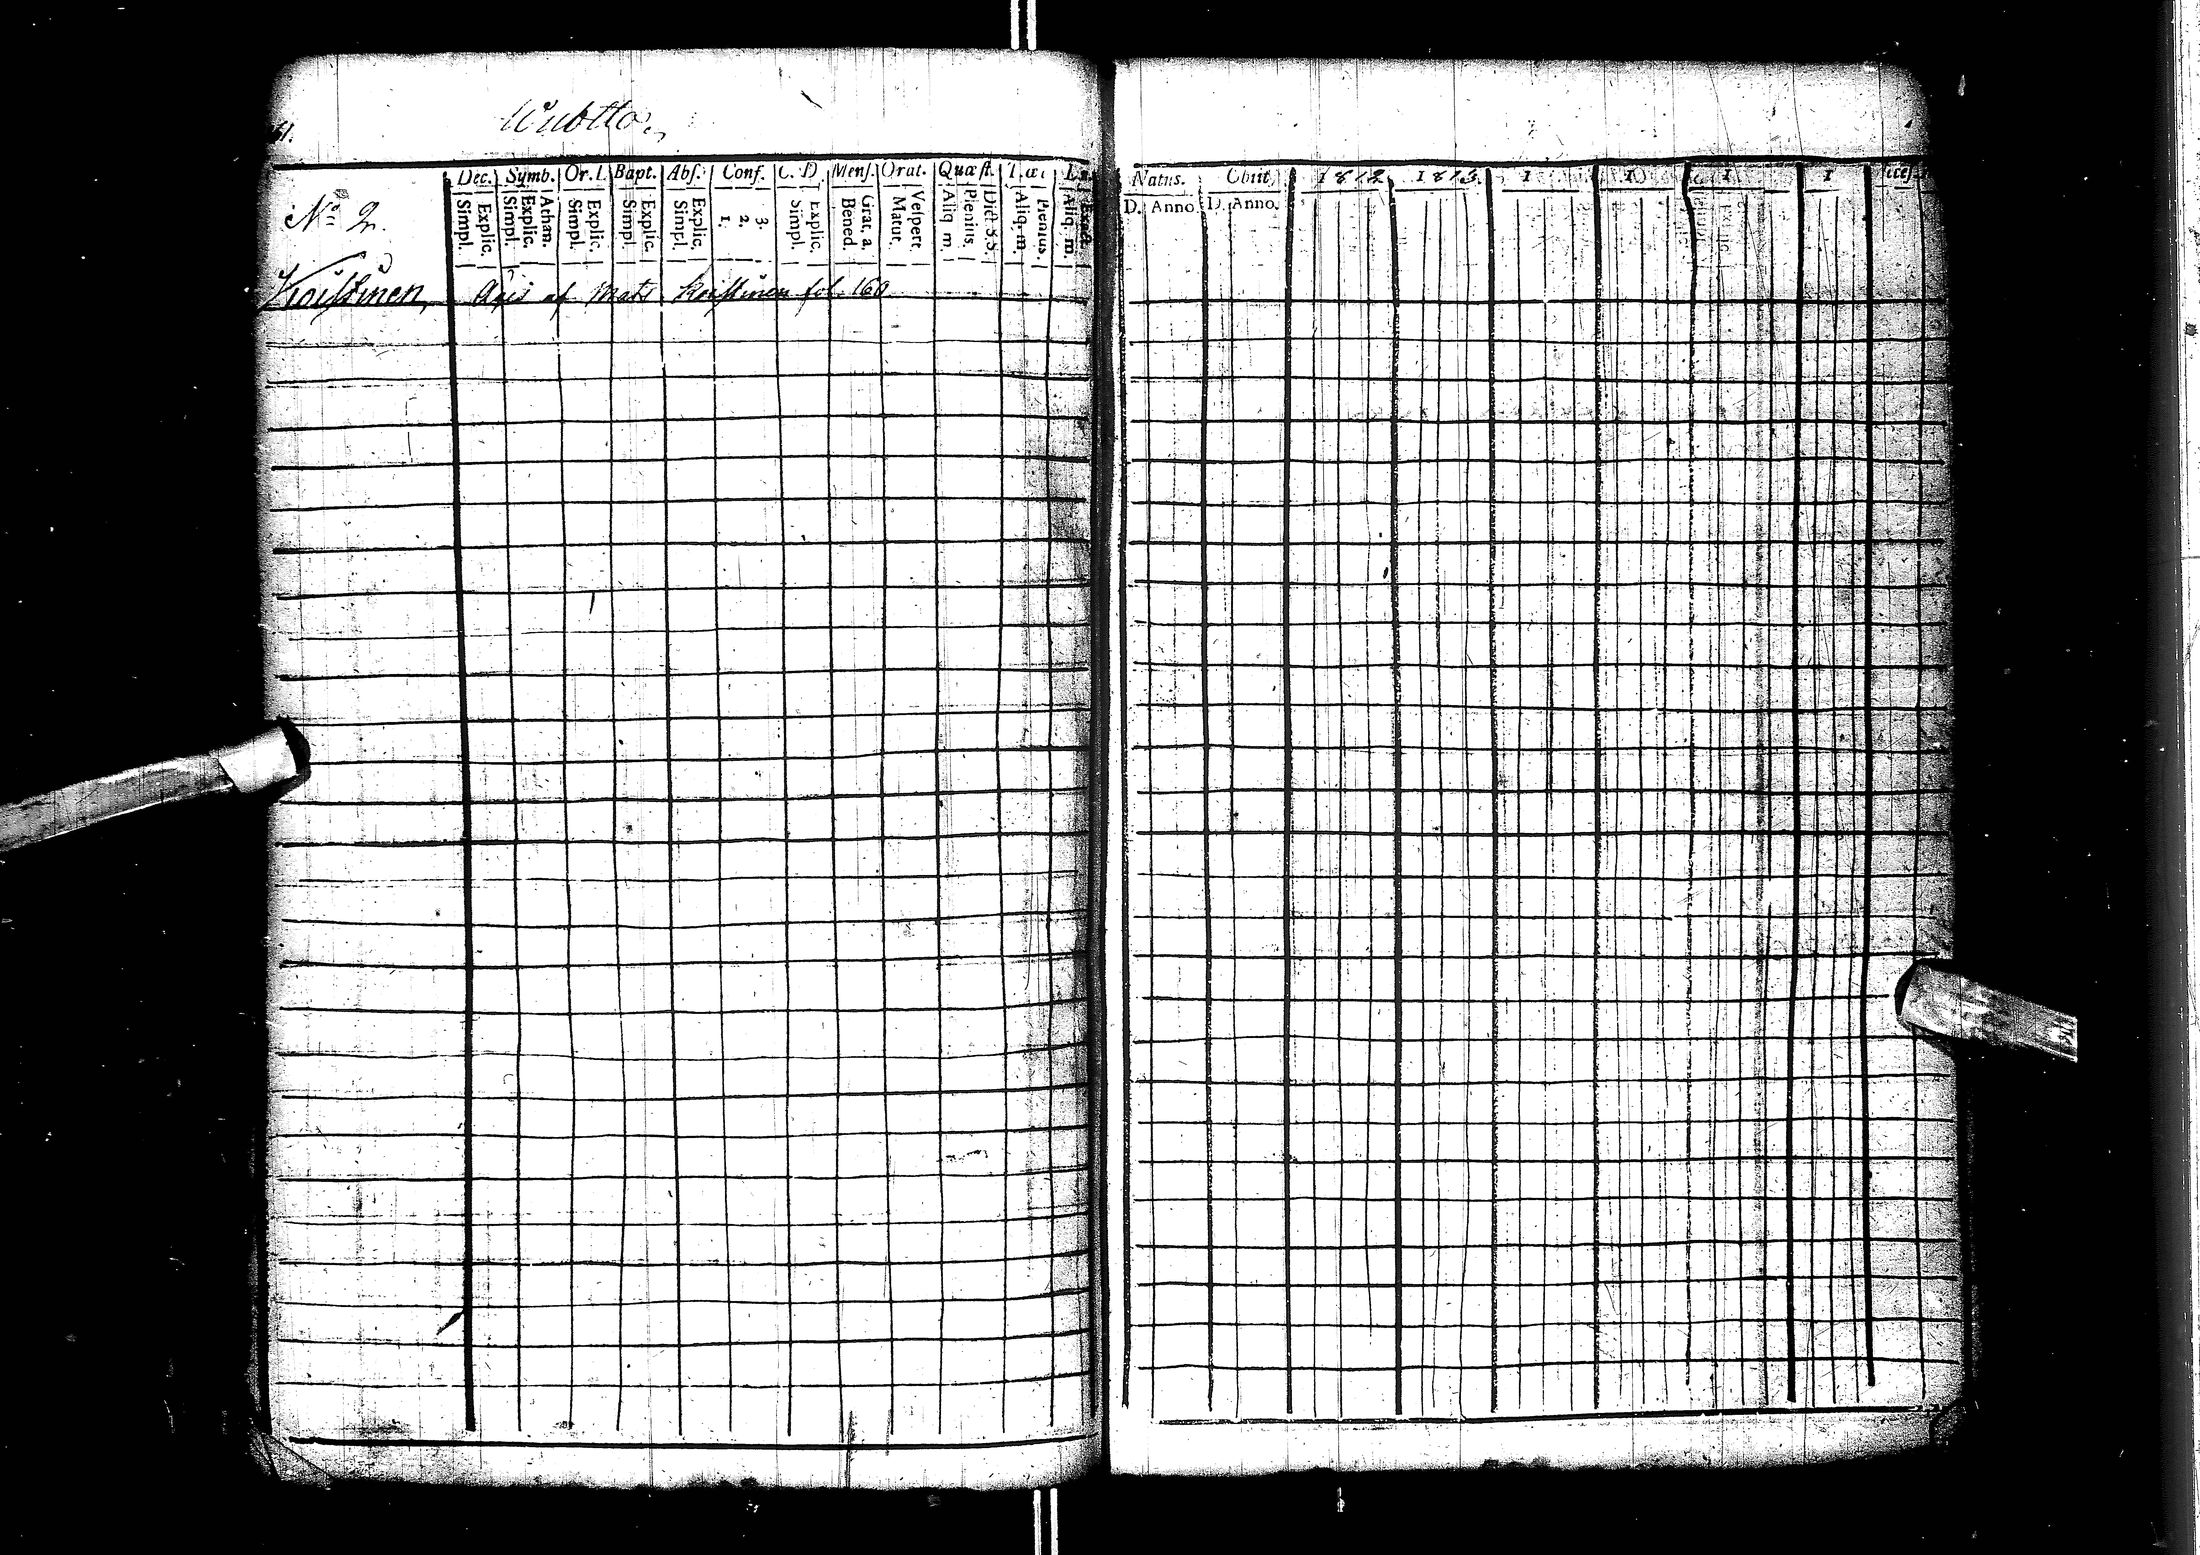 Wuotto.
Dec. Symb. Or. D. Bapt. Abs. Conf. C. D. Mens. Orat. Quæst.
Explic. Simpl. Athan. Explic. Simpl. Explic. Simpl. Explic. Simpl. Explic. Simpl. 3. 2. 1. Explic. Simpl. Grat. a. Bened. Vespert. Matut. Dict. S.S. Plenius. Aliq. m. Plenius. Aliq. m. Exact. Aliq. m.
No 2.
Koistinen, Äges af Mats Koistinen fol. 160
Natus. Obiit. 1812. 1813. 1 1 1 1
D. Anno. D. Anno.